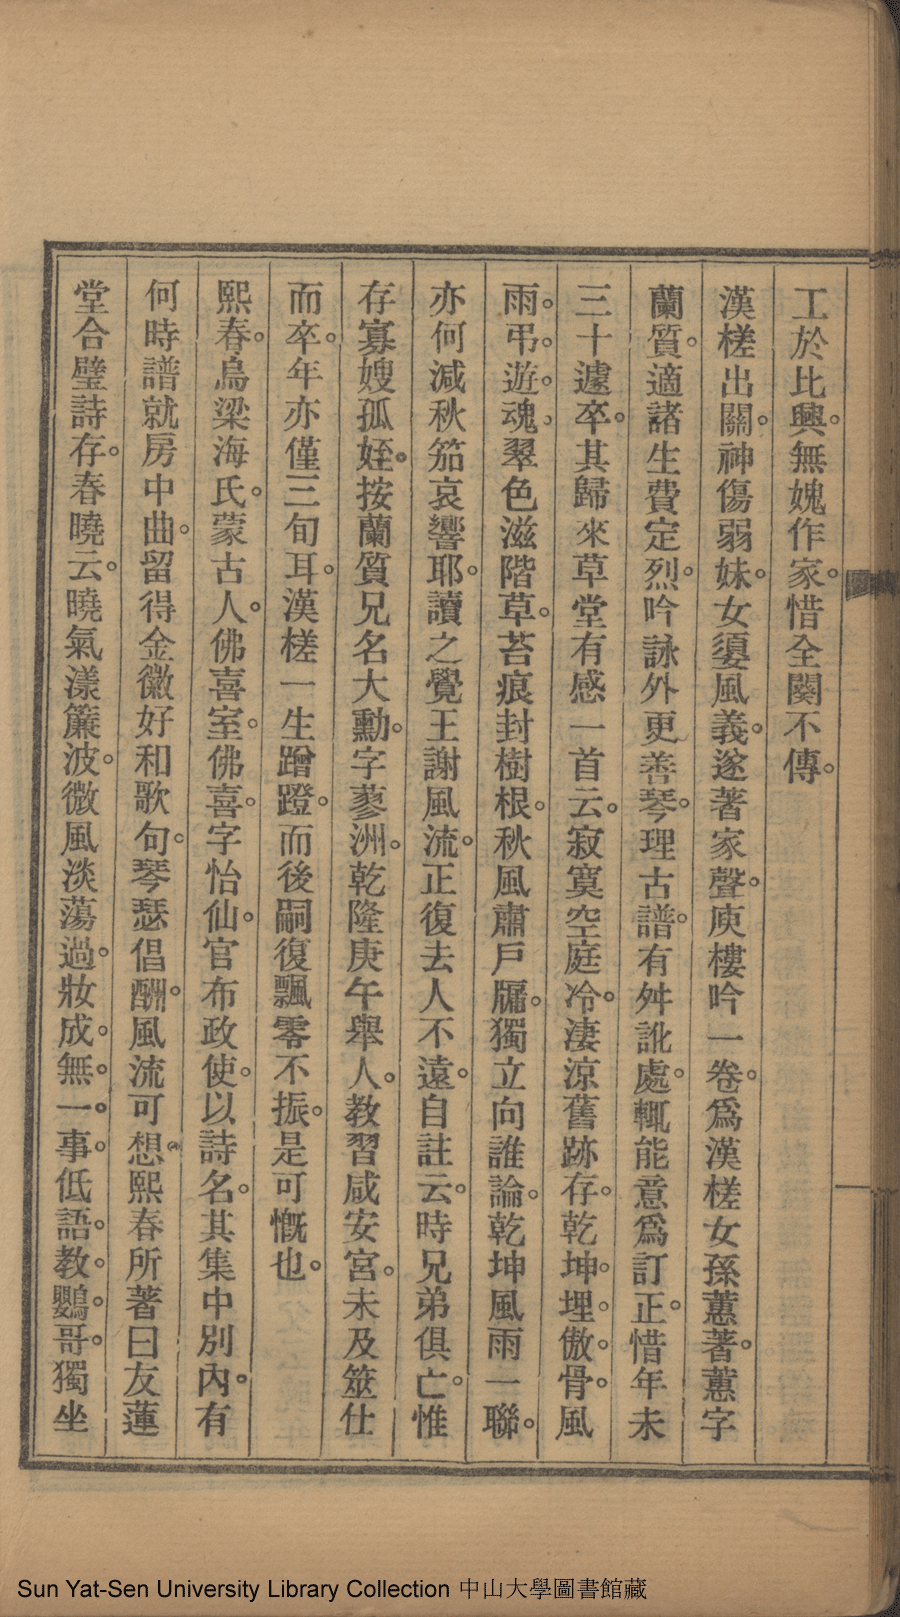 工於比興。無媿作家。惜全闋不傳。
漢槎出關。神傷弱妹。女嬃風義。遂著家聲。庾樓吟一卷。爲漢槎女孫蕙著。蕙字
蘭質。適諸生費定烈。吟詠外更善琴。理古譜。有舛訛處。輒能意爲訂正。惜年未
三十遽卒。其歸來草堂有感一首云。寂寞空庭冷。淒涼舊跡存。乾坤。埋。傲。骨。風
雨。弔。遊。魂。翠色滋階草。苔痕封樹根。秋風肅戶牖。獨立向誰論。乾坤風雨一聯。
亦何減秋笳哀響耶。讀之覺王謝風流。正復去人不遠。自註云。時兄弟俱亡。惟
存寡嫂孤姪。按蘭質兄名大勳。字蓼洲。乾隆庚午舉人。教習咸安宮。未及筮仕
而卒。年亦僅三旬耳。漢槎一生蹭蹬。而後嗣復飄零不振。是可慨也。
熙春。烏梁海氏。蒙古人。佛喜室。佛喜。字怡仙。官布政使。以詩名。其集中別內。有
何時譜就房中曲。留得金徽好和歌句。琴瑟倡酬。風流可想。熙春所著曰友蓮
堂合璧詩存。春曉云。曉氣漾簾波。微風淡蕩過。妝成。無。一。事。低語。教。鸚。哥。獨坐
Sun Yat-Sen University Library Collection 中山大學圖書館藏